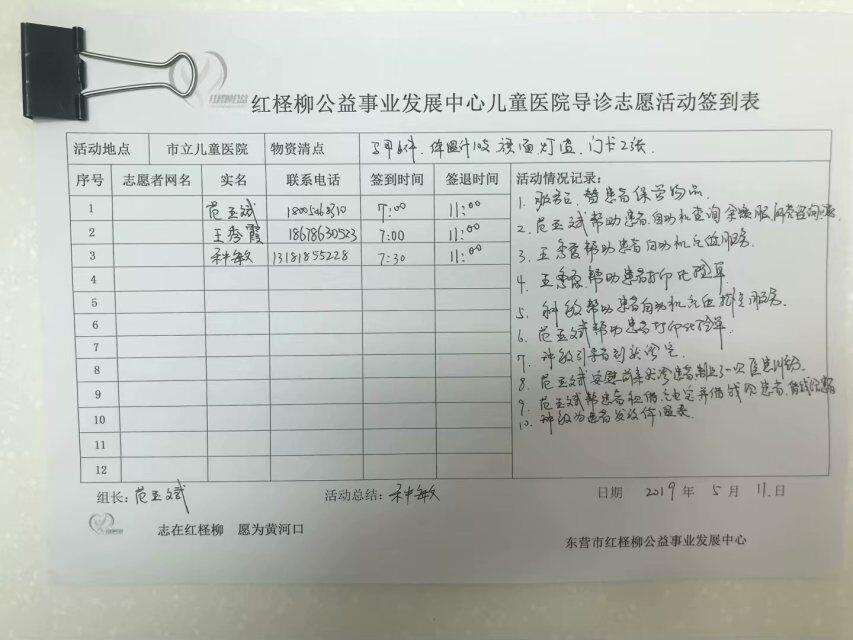 红柽柳公益事业发展中心儿童医院导诊志愿活动签到表
活动地点 市立儿童医院 物资清点 马甲6件、体温计10支、 门卡2张.
序号 志愿者网名 实名 联系电话 签到时间 签退时间 活动情况记录:
1 范玉斌 7:00 11:00
2 王秀霞 18678630523 7:00 11:00
3 种敏 13181855228 7:30 11:00
4
5
6
7
8
9
10
11
12
1. 服务台 替患者保管物品.
2. 范玉斌帮助患者自动机查询
3. 王秀霞帮助患者自动机充值服务.
4. 王秀霞帮助患者打印化验单
5. 种敏帮助患者自动机充值挂号服务.
6. 范玉斌帮助患者打印化验单.
7. 种敏引导患者到 诊室.
8. 范玉斌安慰前来 患者
9. 范玉斌帮患者租借充电宝并借钱 患者
10. 种敏为患者发放体温表
组长: 范玉斌 活动总结: 种敏 日期 2019 年 5 月 11 日
志在红柽柳 愿为黄河口
东营市红柽柳公益事业发展中心